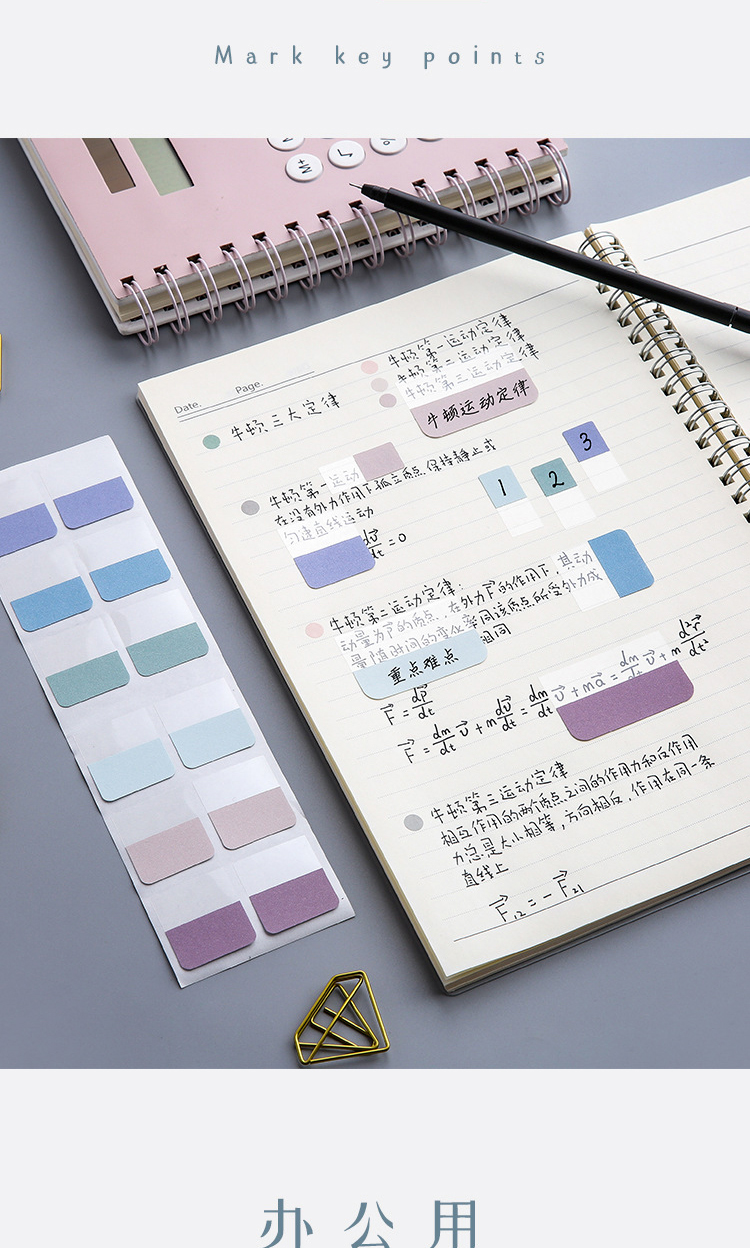 Mark key points
M+
√
%
Date.
Page.
牛顿三大定律
牛顿第一运动定律
牛顿第二运动定律
牛顿第三运动定律
牛顿运动定律
1
2
3
牛顿第一运动
在没有外力作用下孤立质点,保持静止或
匀速直线运动
dv⃗/dt = 0
牛顿第二运动定律:
动量为P⃗的质点,在外力F⃗的作用下,其动
量随时间的变化率同该质点所受外力成
相同
重点难点
F⃗ = dP⃗/dt
F⃗ = dm/dt v⃗ + m dv⃗/dt = dm/dt v⃗ + ma⃗ = dm/dt v⃗ + m d²r⃗/dt²
牛顿第三运动定律
相互作用的两个质点之间的作用力和反作用
力总是大小相等,方向相反,作用在同一条
直线上
F⃗₁₂ = - F⃗₂₁
办公用